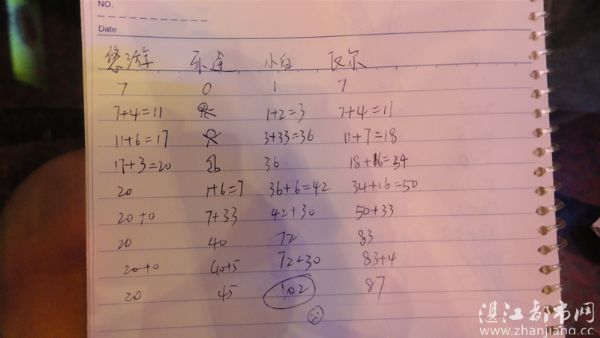 NO.
Date
悠游 乐逢 小白 反尔
7 0 1 7
7+4=11 1+2=3 7+4=11
11+6=17 3+33=36 11+7=18
17+3=20 36 18+16=34
20 1+6=7 36+6=42 34+16=50
20+0 7+33 42+30 50+33
20 40 72 83
20+0 40+5 72+30 83+4
20 45 102 87
湛江都市网
www.zhanjiang.cc